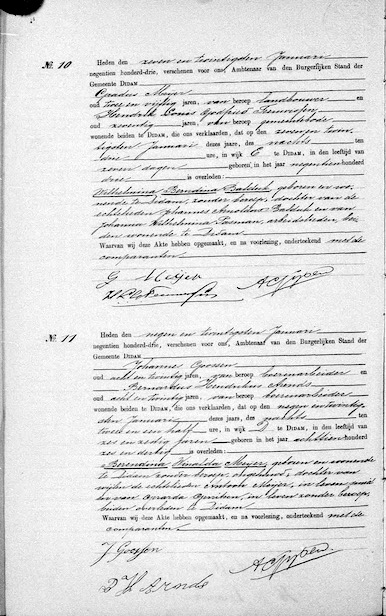 №. 10
Heden den zeven en twintigsten Januari
negentien honderd-drie, verschenen voor ons, Ambtenaar van den Burgerlijken Stand der
Gemeente DIDAM
Gradus Meijer
oud twee en vijftig jaren, van beroep landbouwer en
Hendrik Louis Godfried
oud zeventig jaren, van beroep gemeentebode
wonende beiden te DIDAM, die ons verklaarden, dat op den zeven en twin-
tigsten Januari dezes jaars, des nachts ten
drie ure, in wijk te DIDAM, in den leeftijd van
zeven dagen geboren in het jaar negentienhonderd
drie is overleden:
Wilhelmina Berendina geboren en wo-
nende te Didam, zonder beroep, dochter van de
echtelieden Johannes Arnoldus en van
Johanna Wilhelmina arbeidslieden, bei-
den wonende te Didam
Waarvan wij deze Akte hebben opgemaakt, en na voorlezing, onderteekend met de
comparanten.
G Meijer
№. 11
Heden den negen en twintigsten Januari
negentien honderd-drie, verschenen voor ons, Ambtenaar van den Burgerlijken Stand der
Gemeente DIDAM
Johannes Goossen
oud acht en twintig jaren, van beroep boerenarbeider en
Bernardus Hendrikus Arends
oud acht en twintig jaren, van beroep boerenarbeider
wonende beiden te DIDAM, die ons verklaarden, dat op den negen en twintig-
sten Januari dezes jaars, des nachts ten
twee en een half ure, in wijk te DIDAM, in den leeftijd van
zes en zestig jaren geboren in het jaar achttien honderd
zes en dertig is overleden:
Berendina Meijer, geboren en wonende
te Didam, zonder beroep, dochter van
wijlen de echtelieden Meijer, in leven
en van in leven zonder beroep,
beiden overleden te Didam
Waarvan wij deze Akte hebben opgemaakt, en na voorlezing, onderteekend met de
comparanten.
J Goossen
B H Arends